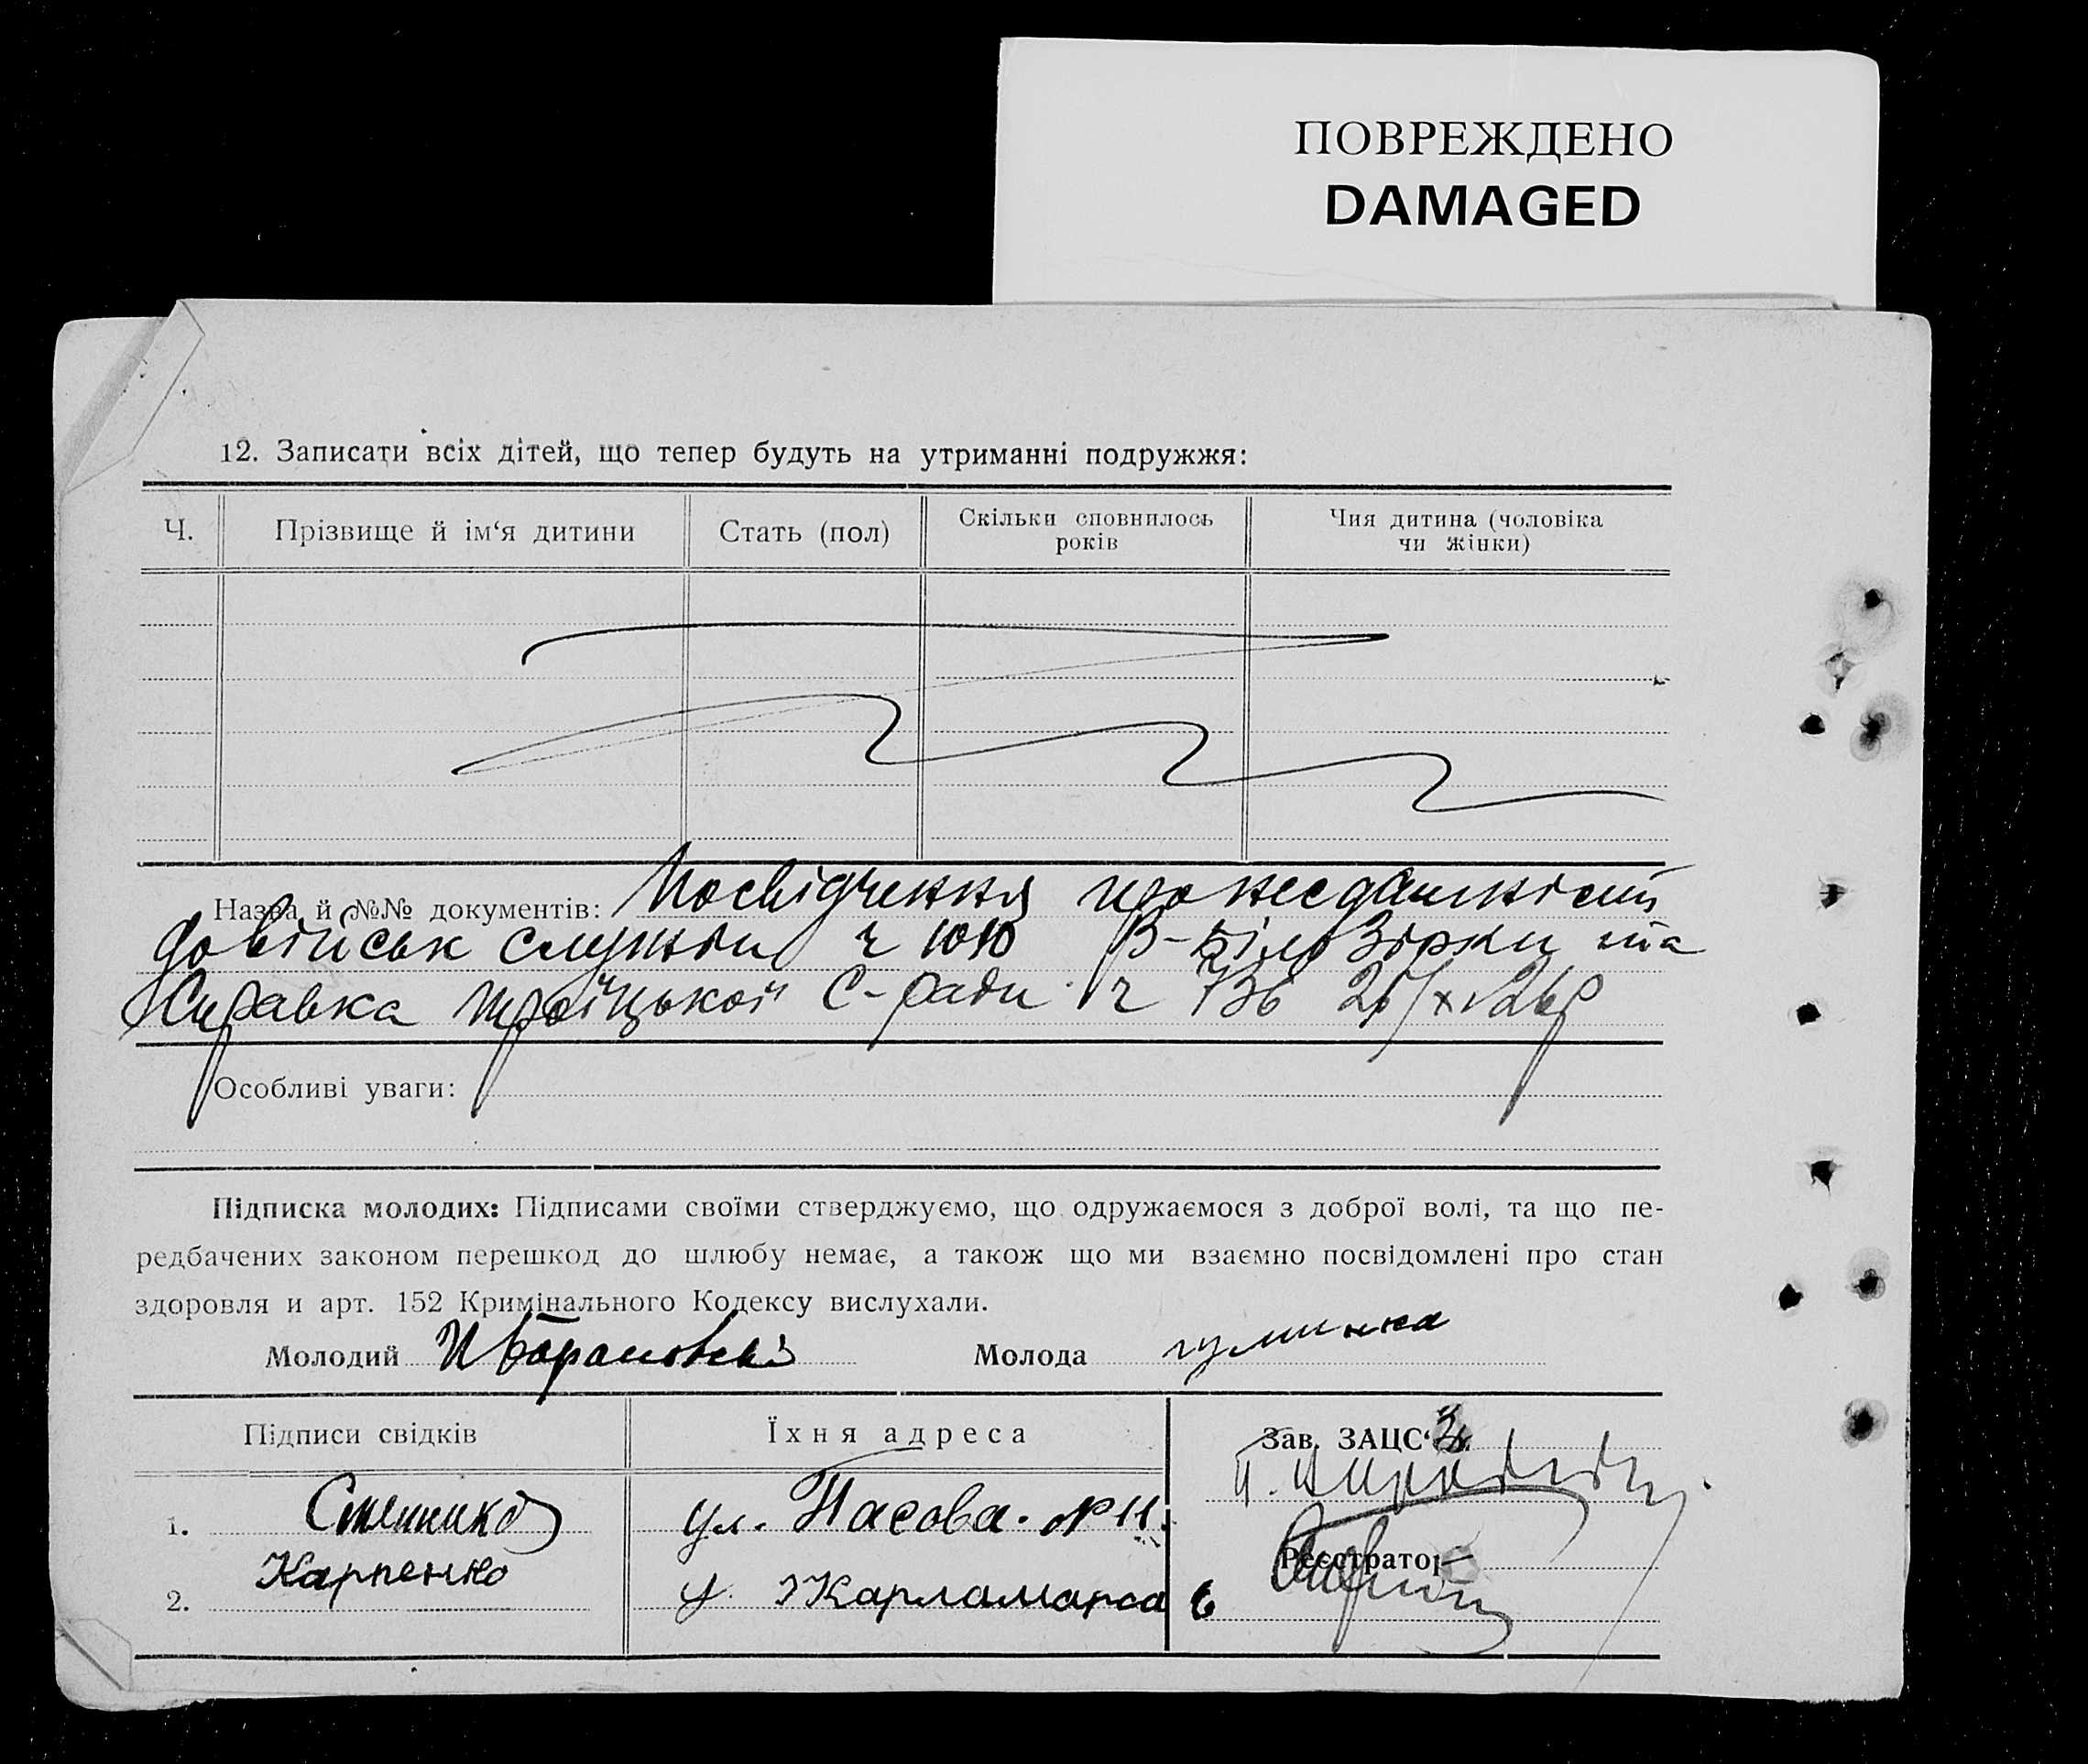 ПОВРЕЖДЕНО
DAMAGED
12. Записати всіх дітей, що тепер будуть на утриманні подружжя:
Ч. Прізвище й ім‘я дитини Стать (пол) Скільки сповнилось років Чия дитина (чоловіка чи жінки)
Назва й №№ документів: Посвідчення про нездатність
до військ служби ч 1010 В-Біло Зірки та
Справка Троїцької С-ради ч 736
Особливі уваги:
Підписка молодих: Підписами своїми стверджуємо, що одружаємося з доброї волі, та що пе-
редбачених законом перешкод до шлюбу немає, а також що ми взаємно посвідомлені про стан
здоровля и арт. 152 Кримінального Кодексу вислухали.
Молодий Молода
Підписи свідків Їхня адреса Зав. ЗАЦС‘
1. ул. №11.
Реєстратор
2. Карпенко у. Карламарса 6